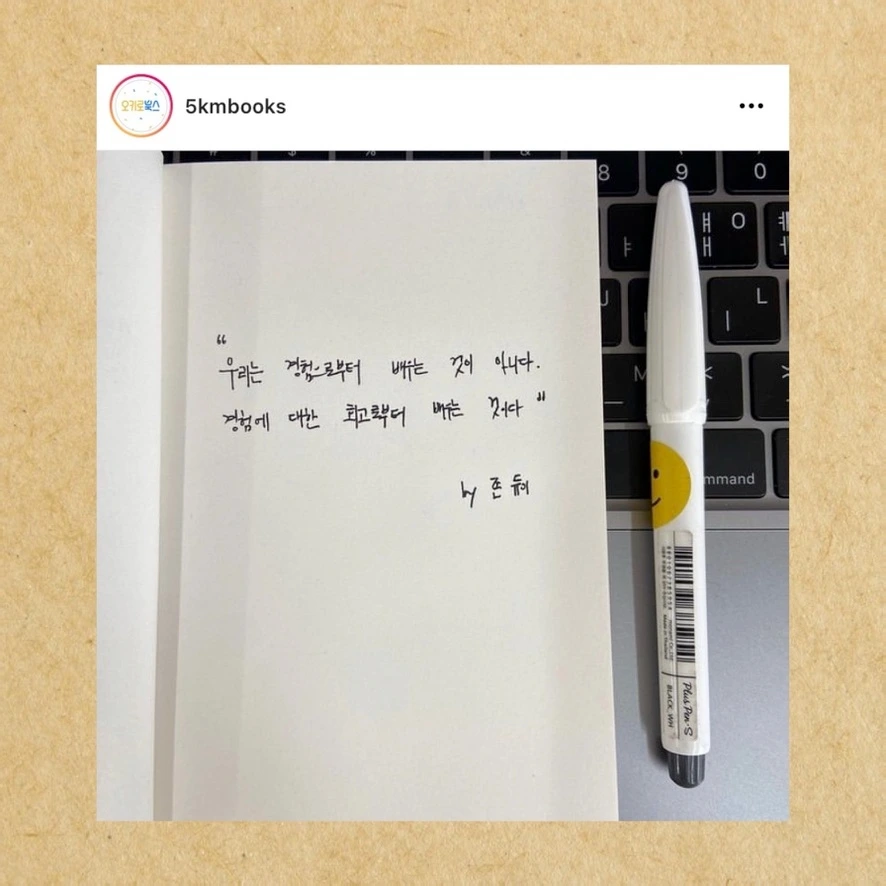 오키로북스
5kmbooks
8 9 0
ㅑ ㅐ ㅒ O ㅔ
J ㅣ L
M < >
mmand
“
우리는 경험으로부터 배우는 것이 아니다.
경험에 대한 회고로부터 배우는 것이다”
by 존 듀이
Plus Pen·S
BLACK, WH